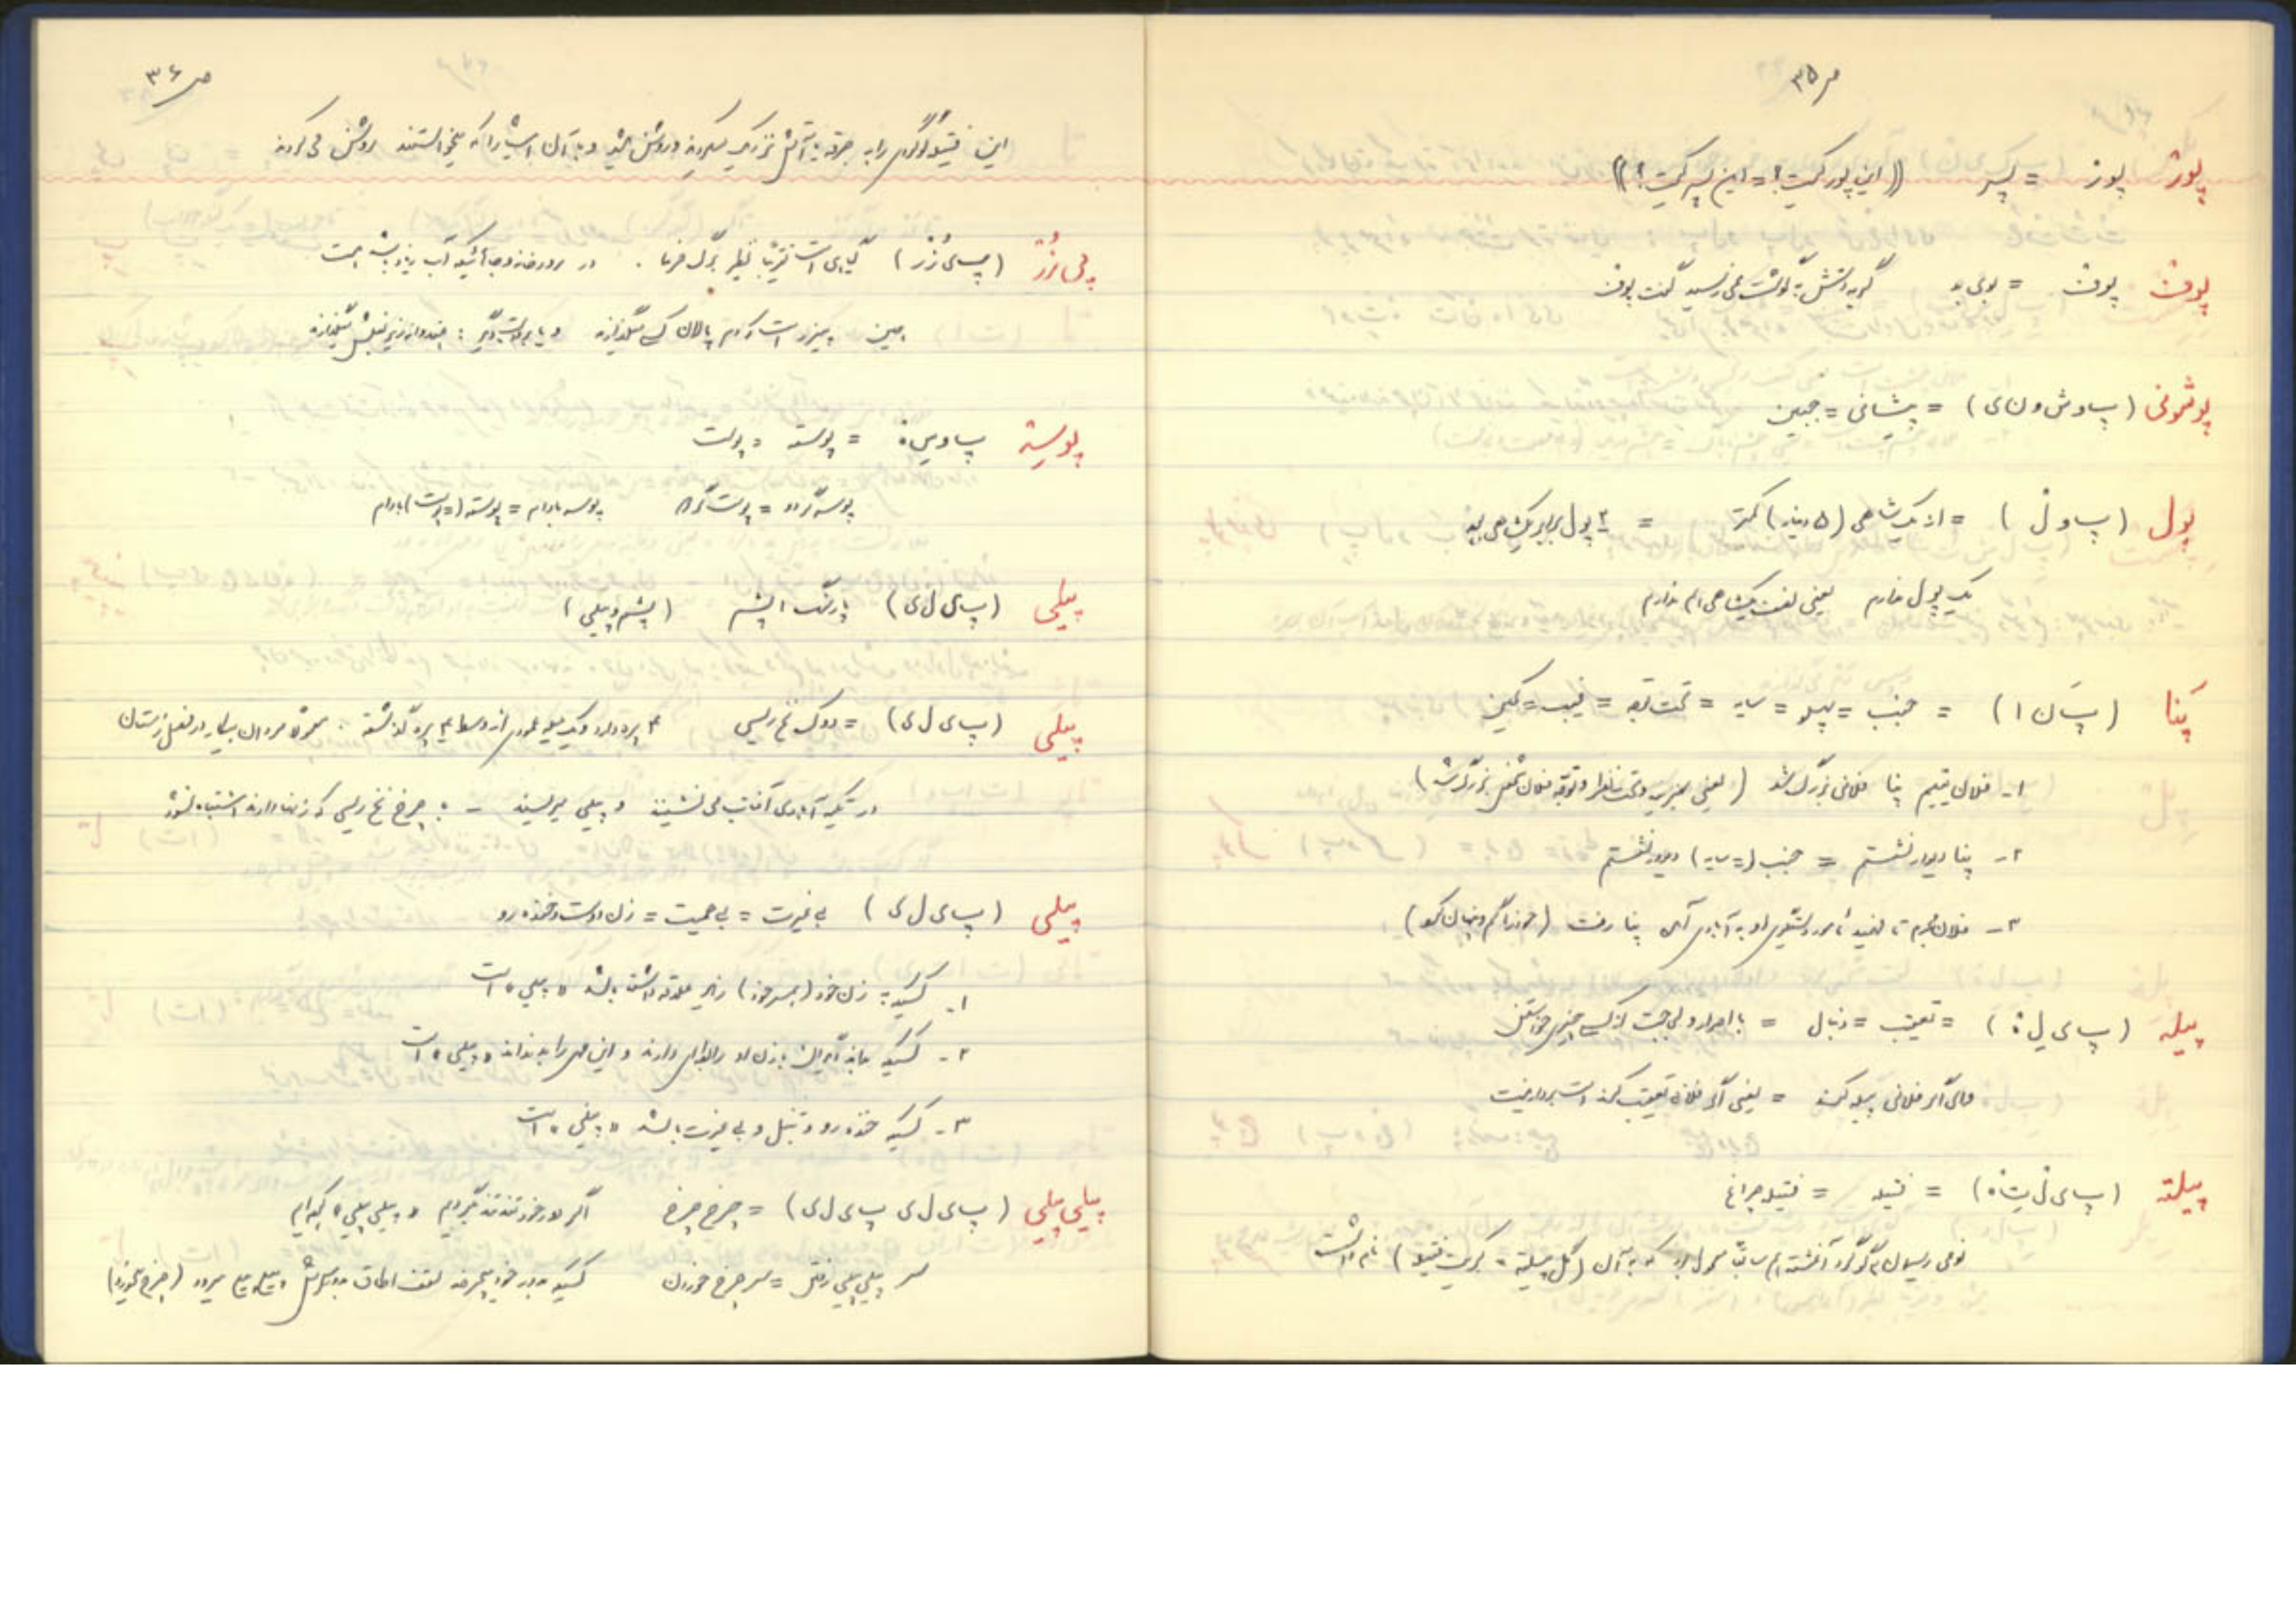 ص ۳۵
پور پور = پسر ((این پور کیست؟ = این پسر کیست؟))
پوف پوف = بوی بد گربه دستش به گوشت نمی رسید گفت پوف
پوشونی (پ و ش و ن ی) = پیشانی = جبین
پول (پ و ل) = از یک شاهی (۵ دینار) کمتر = ۲ پول برابر یکشاهی بود
یک پول ندارم یعنی نصف یکشاهی هم ندارم
پنا (پَ ن ا) = جنب = پهلو = سایه = تحت توجه = غیب = کمین
۱- فلان یتیم پنا فلانی بزرگ شد (یعنی سرپرستی و تحت نظر و توجه فلان شخص بزرگ شد)
۲- پنا دیوار نشستم = جنب (= سایه) دیوار نشستم
۳- فلان مجرم تا فهمید مأمور دستگیری او به آبادی آمد پنا رفت (خود را گم و پنهان کرد)
پیله (پ ی ل ه) = تعقیب = دنبال = با اصرار و لجاجت از کسی چیزی خواستن
وای اگر فلانی پیله کند = یعنی اگر فلانی تعقیب کند دست بردار نیست
پیلته (پ ی ل ت ه) = فتیله = فتیله چراغ
نوعی ریسمان به گوگرد آغشته هم سابق معمول بود که به آن (گل پیلته = کبریت فتیله) نام داشت
ص ۳۶
این فتیله گوگردی را به جرقه یا آتش نزدیک میکردند و روشن میشد و با آن اشیا را که میخواستند روشن می کردند
پی زُرْ (پ ی زُرْ) گیاهی است تقریباً نظیر برگ خرما . در رودخانه و جائیکه آب زیاد باشد هست
پوسته پ و س ه = پوسته = پوست
پوسه گردو = پوست گردو پوسه بادام = پوسته (= پوست) بادام
پیلی (پ ی ل ی) پشم (پشم و پیلی)
پیلی (پ ی ل ی) = دوک نخ ریسی ۴ پره دارد و یک میله عمودی از وسط ۴ پره گذشته . معمولا مردان بیکار در فصل زمستان
در تکیه آبادی آفتاب می نشینند و پیلی میریسند - با چرخ نخ ریسی که زنها دارند اشتباه نشود
پیلی (پ ی ل ی) بی غیرت = بی حمیت = زن دوست و خنده رو
۱- کسیکه به زن خود (همسر خود) زیاد علاقه داشته باشد «پیلی» است
۲- کسیکه بداند دیگران با زن او رابطه دارند و این امر را بد نداند «پیلی» است
۳- کسیکه خنده رو و تنبل و بی غیرت باشد «پیلی» است
پیلی پیلی (پ ی ل ی پ ی ل ی) = چرخ چرخ اگر دور خود تند تند بگردیم «پیلی پیلی» کرده ایم
سر پیلی پیلی رفتن = سر چرخ خوردن کسیکه بدور خود بچرخد سقف اطاق بدور سرش پیلی پیلی میرود (چرخ میخورد)